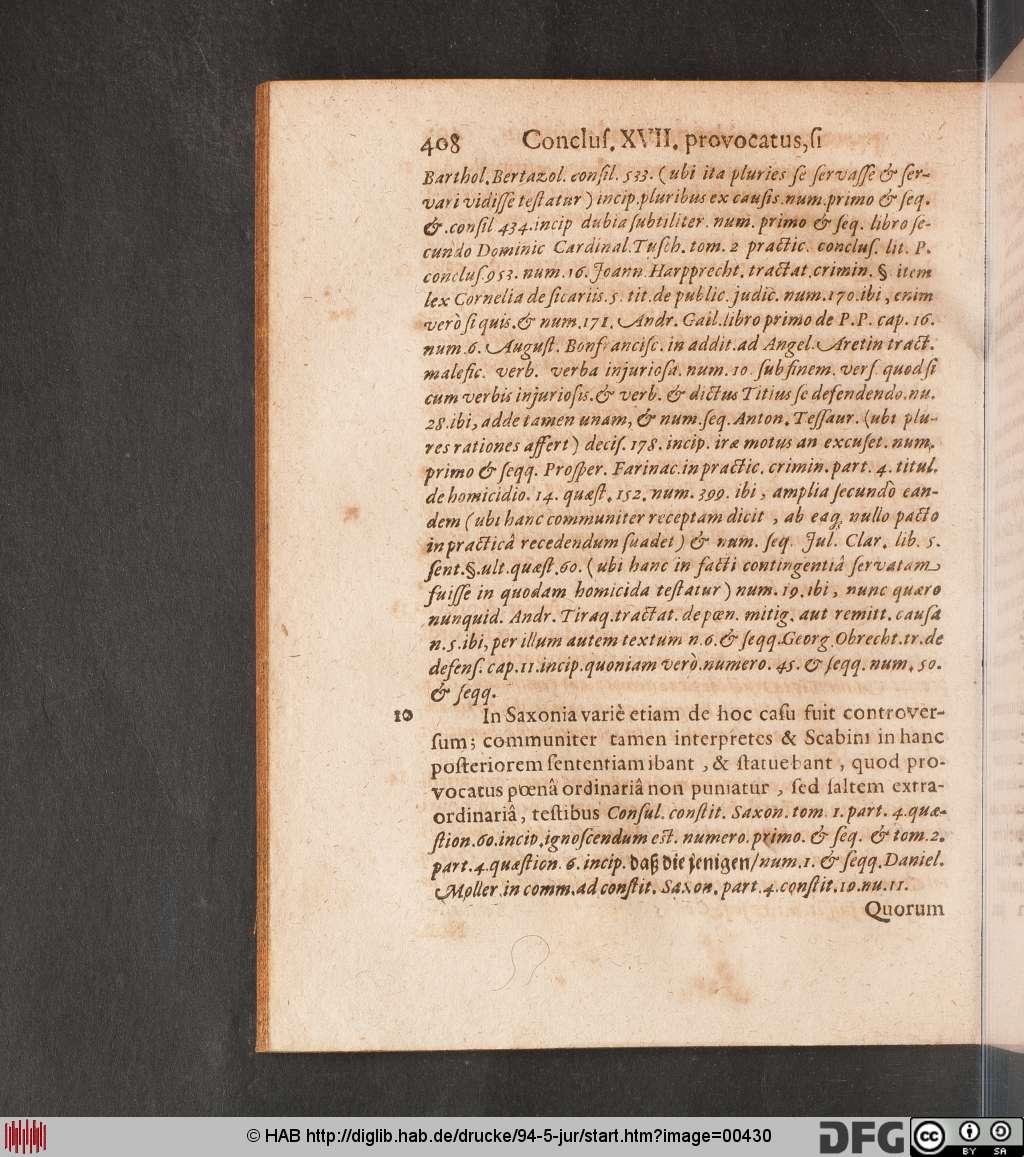 408 Concluſ. XVII. provocatus, ſi
Barthol. Bertazol. conſil. 533. (ubi ita pluries ſe ſervaſſe & ſer-
vari vidiſſe teſtatur) incip. pluribus ex cauſis. num. primo & ſeq.
&. conſil 434. incip dubia ſubtiliter. num. primo & ſeq. libro ſe-
cundo Dominic Cardinal. Tuſch. tom. 2 practic. concluſ. lit. P.
concluſ. 953. num. 16. Joann. Harpprecht. tractat. crimin. §. item
lex Cornelia de ſicariis. 5. tit. de public. judic. num. 170. ibi, enim
verò ſi quis. & num. 171. Andr. Gail. libro primo de P. P. cap. 16.
num. 6. Auguſt. Bonfranciſc. in addit. ad Angel. Aretin tract.
malefic. verb. verba injurioſa. num. 10 ſub finem. verſ. quod ſi
cum verbis injurioſis. & verb. & dictus Titius ſe defendendo. nu.
28. ibi, adde tamen unam, & num. ſeq. Anton. Teſſaur. (ubi plu-
res rationes affert) deciſ. 178. incip. iræ motus an excuſet. num.
primo & ſeqq. Proſper. Farinac. in practic. crimin. part. 4. titul.
de homicidio. 14. quæſt. 152. num. 399. ibi, amplia ſecundò ean-
dem (ubi hanc communiter receptam dicit, ab eaq; nullo pacto
in practicâ recedendum ſuadet) & num. ſeq. Jul. Clar. lib. 5.
ſent. §. ult. quæſt. 60. (ubi hanc in facti contingentiâ ſervatam
fuiſſe in quodam homicida teſtatur) num. 19. ibi, nunc quæro
nunquid. Andr. Tiraq. tractat. de pœn. mitig. aut remitt. cauſa
n. 5. ibi, per illum autem textum n. 6. & ſeqq. Georg. Obrecht. tr. de
defenſ. cap. 11. incip. quoniam verò. numero. 45. & ſeqq. num. 50.
& ſeqq.
10 In Saxonia variè etiam de hoc caſu fuit controver-
ſum; communiter tamen interpretes & Scabini in hanc
poſteriorem ſententiam ibant, & ſtatuebant, quod pro-
vocatus pœnâ ordinariâ non puniatur, ſed ſaltem extra-
ordinariâ, teſtibus Conſul. conſtit. Saxon. tom. 1. part. 4. quæ-
ſtion. 60. incip. ignoſcendum eſt. numero. primo. & ſeq. & tom. 2.
part. 4. quæſtion. 6. incip. daß die jenigen/ num. 1. & ſeqq. Daniel.
Moller. in comm. ad conſtit. Saxon. part. 4. conſtit. 10. nu. 11.
Quorum
© HAB http://diglib.hab.de/drucke/94-5-jur/start.htm?image=00430
DFG
cc BY SA